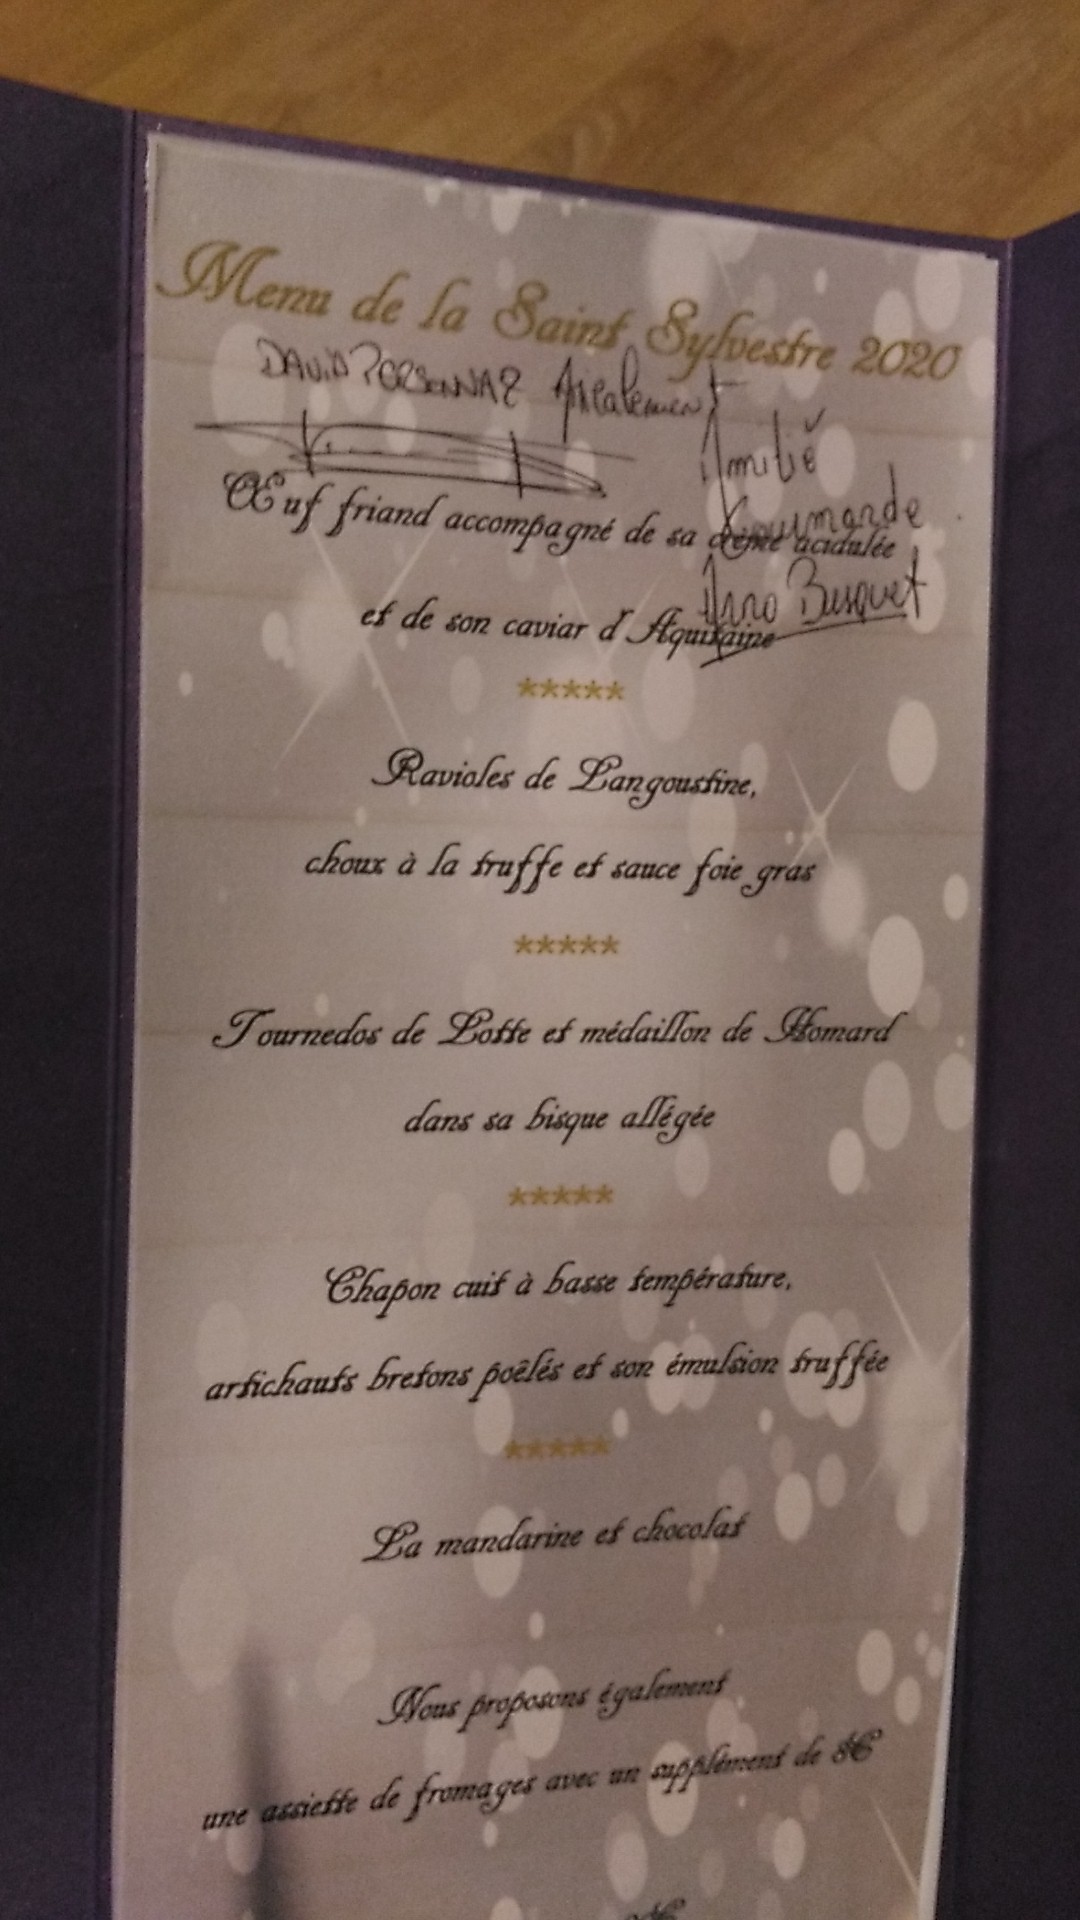 Menu de la Saint Sylvestre 2020
DAVID PERSONNAZ Amicalement
Amitié
Gourmande
Arno Busquet
Œuf friand accompagné de sa crème acidulée
et de son caviar d'Aquitaine
*****
Ravioles de Langoustine,
choux à la truffe et sauce foie gras
*****
Tournedos de Lotte et médaillon de Homard
dans sa bisque allégée
*****
Chapon cuit à basse température,
artichauts bretons poêlés et son émulsion truffée
*****
La mandarine et chocolat
Nous proposons également
une assiette de fromages avec un supplément de 8€